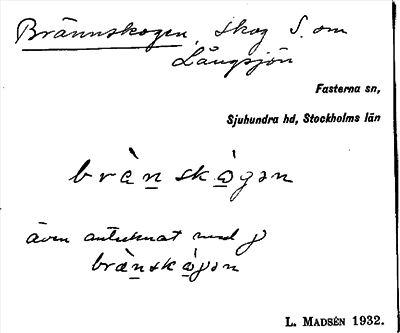 Brännskogen, skog S. om
Långsjön
Fasterna sn,
Sjuhundra hd, Stockholms län
brὰn̲skò̲gən
även antecknat med ꝩ
brὰn̲skò̲ꝩən
L. MADSÉN 1932.